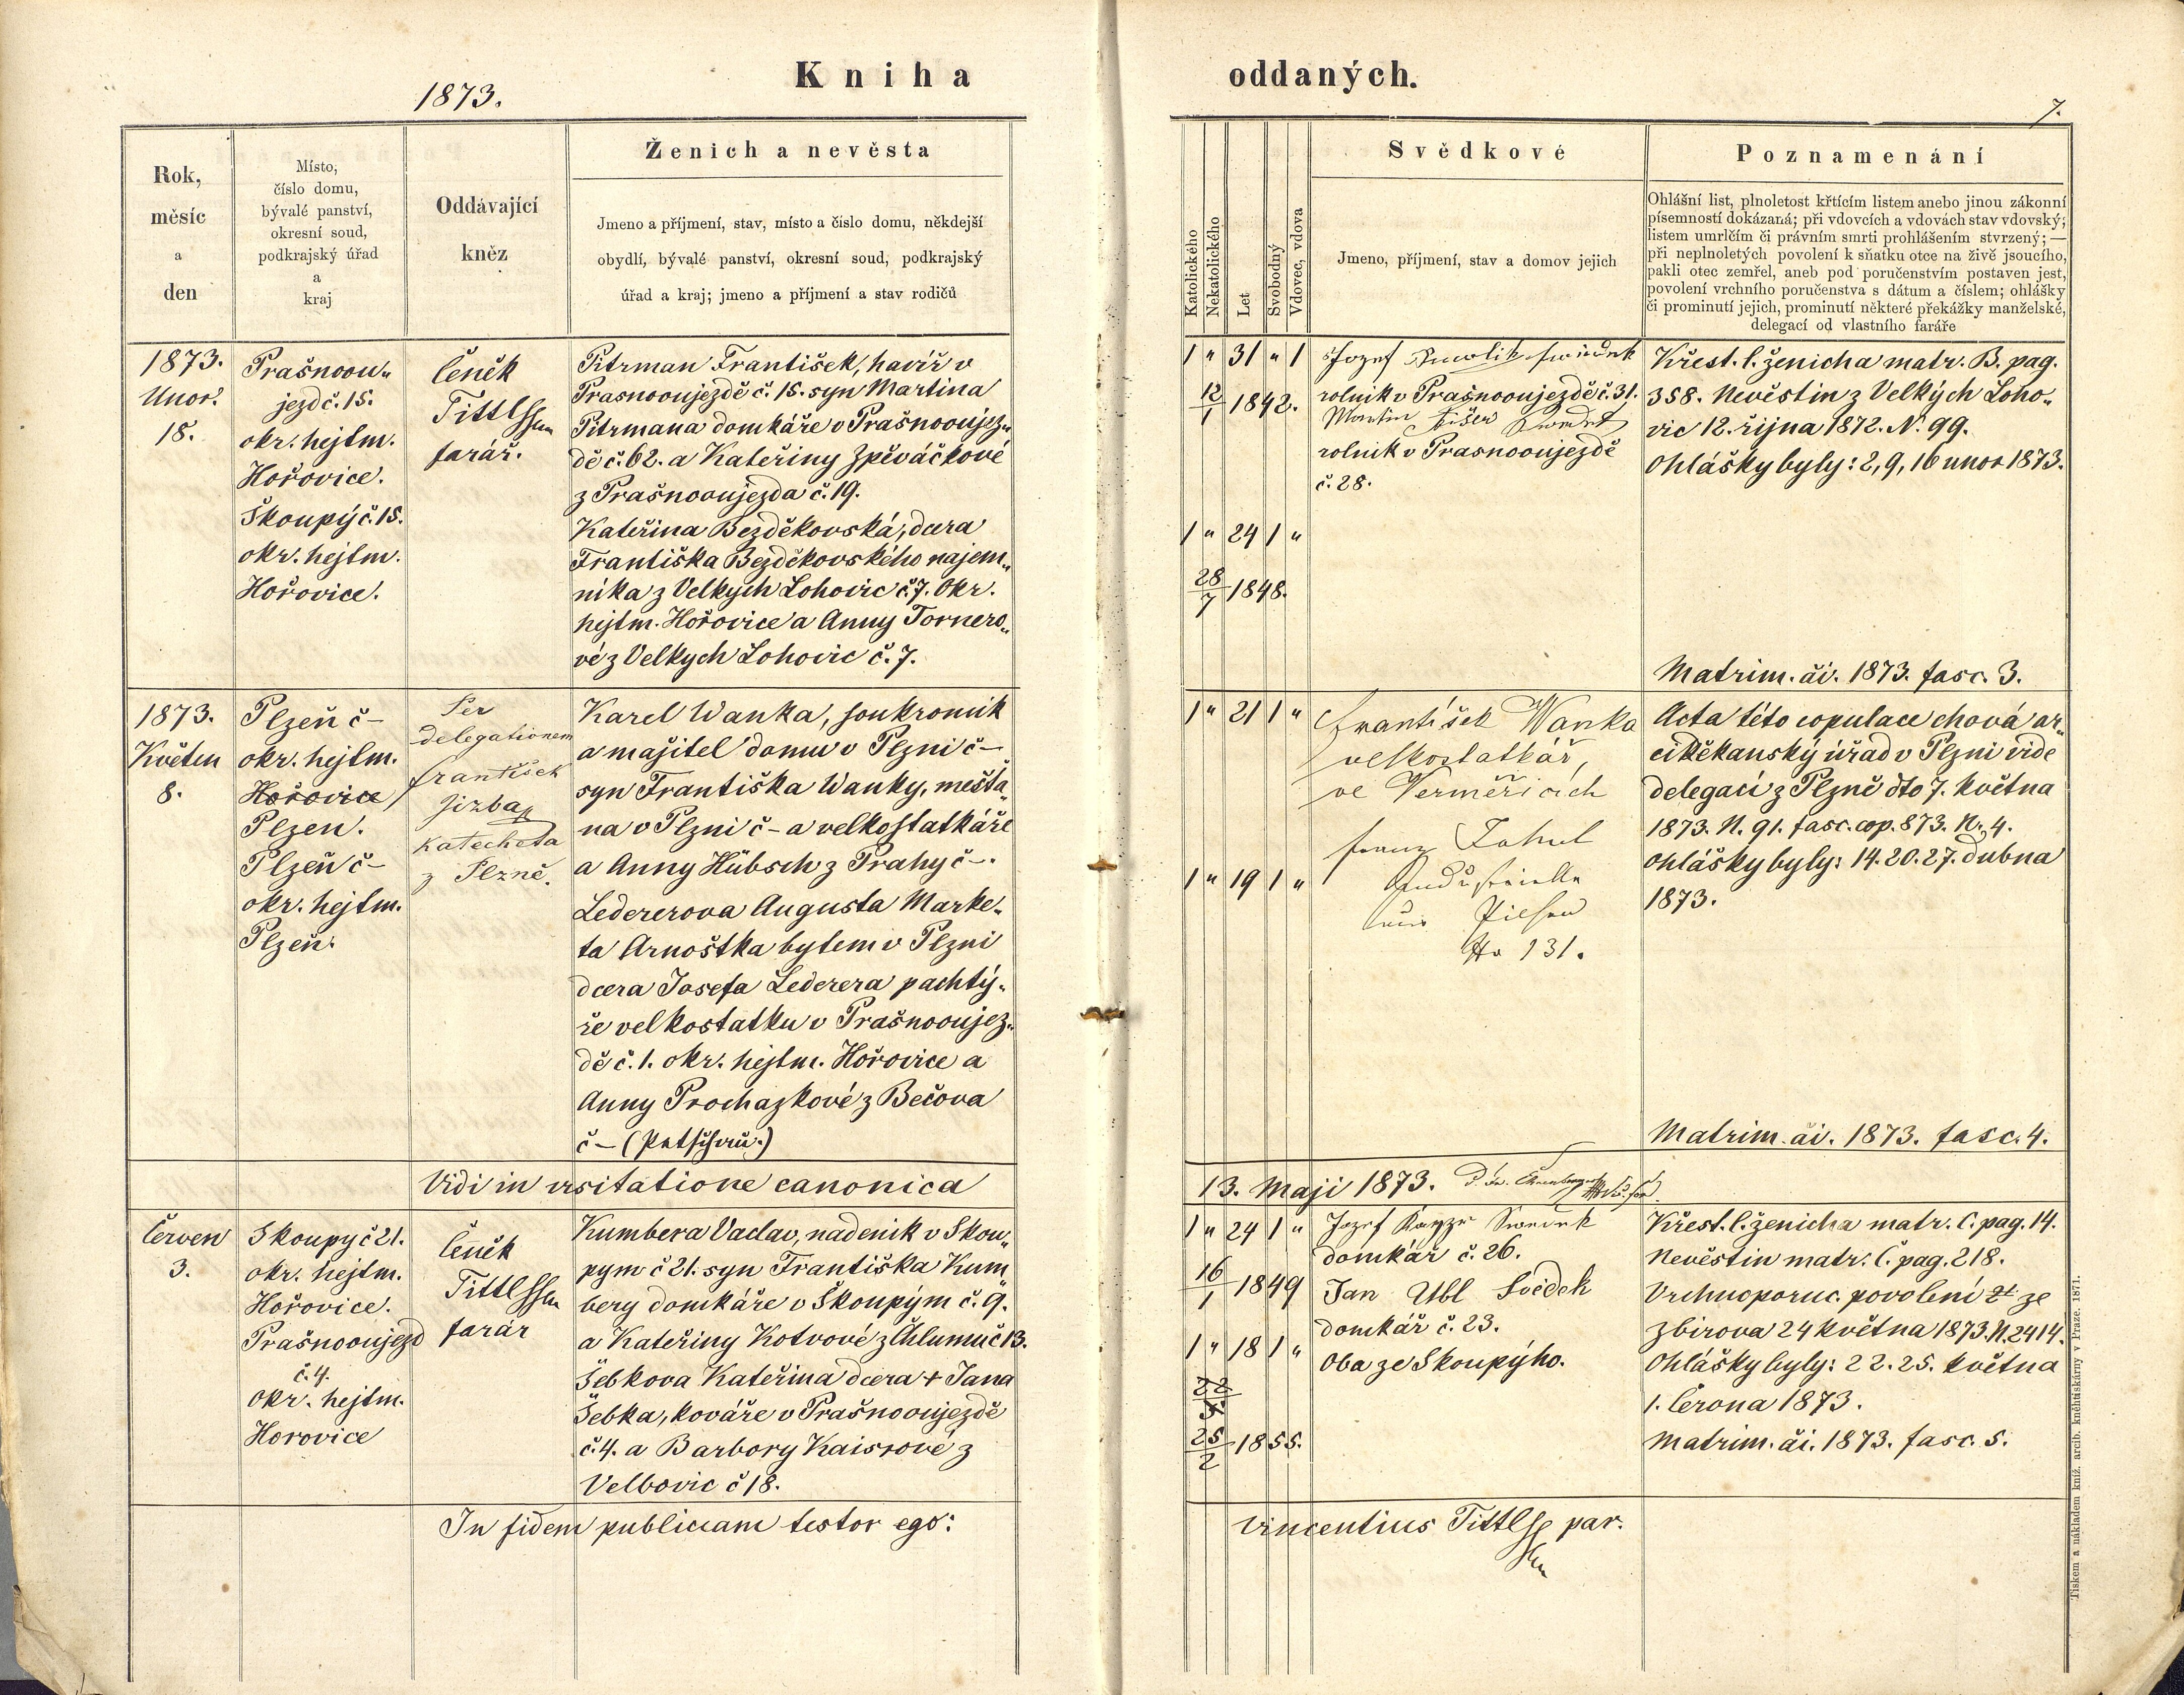 Kniha oddaných.
1873.
7.
Rok,
měsíc
a
den
Místo,
číslo domu,
bývalé panství,
okresní soud,
podkrajský úřad
a
kraj
Oddávající
kněz
Ženich a nevěsta
Jmeno a příjmení, stav, místo a číslo domu, někdejší
obydlí, bývalé panství, okresní soud, podkrajský
úřad a kraj; jmeno a příjmení a stav rodičů
Katolického
Nekatolického
Let
Svobodný
Vdovec, vdova
Svědkové
Jmeno, příjmení, stav a domov jejich
Poznamenání
Ohlášní list, plnoletost křtícím listem anebo jinou zákonní
písemností dokázaná; při vdovcích a vdovách stav vdovský;
listem umrlčím či právním smrti prohlášením stvrzený; —
při neplnoletých povolení k sňatku otce na živě jsoucího,
pakli otec zemřel, aneb pod poručenstvím postaven jest,
povolení vrchního poručenstva s dátum a číslem; ohlášky
či prominutí jejich, prominutí některé překážky manželské,
delegací od vlastního faráře
1873.
Unor.
18.
Prašnoou„
jezd č. 15.
okr. hejtm.
Hořovice.
Skoupý č. 15.
okr. hejtm.
Hořovice.
Čeněk
Tittl
farář.
Pitrman František, havíř v
Prasnooujezdě č. 15. syn Martina
Pitrmana domkáře v Prašnooujez„
dě č. 62. a Kateřiny Zpěváčkové
z Prašnooujezda č. 19.
Kateřina Bezděkovská, dcera
Františka Bezděkovského najem„
níka z Velkych Lohovic č. 7. Okr.
hejtm. Hořovice a Anny Tornero„
vé z Velkych Lohovic č. 7.
1 " 31 " 1
12/1 1842.
1 " 24 1 "
28/7 1848.
Jozef
rolnik v Prašnooujezdě č. 31.
Martin
rolnik v Prasnooujezdě
č. 28.
Křest. l. ženicha matr. B. pag.
358. Nevěstin z Velkých Loho„
vic 12. října 1872. N. 99.
Ohlášky byly: 2, 9, 16 unor 1873.
Matrim. ai. 1873. fasc. 3.
1873.
Květen
8.
Plzeň č –
okr. hejtm.
Hořovice
Plzen.
Plzeň č –
okr. hejtm.
Plzeň.
Per
delegationem
František
Jizba
katecheta
z Plzně.
Karel Wanka, soukromik
a majitel domu v Plzni č –
syn Františka Wanky, mešťa„
na v Plzni č – a velkostatkáře
a Anny Hübsch z Prahy č –.
Ledererova Augusta Marke„
ta Arnoštka bytem v Plzni
dcera Josefa Lederera pachtý„
ře velkostatku v Prašnooujez„
dě č. 1. okr. hejtm. Hořovice a
Anny Prochazkové z Bečova
č – (Petschau.)
1 " 21 1 "
1 " 19 1 "
František Wanka
velkostatkář,
ve Vermeřicích
Franz
Industrieller
Pilsen
No 131.
Acta této copulace chová ar„
ciděkanský úřad v Plzni vide
delegací z Plzně dto 7. května
1873. N. 91. fasc. cop. 873. N. 4.
Ohlášky byly: 14. 20. 27. dubna
1873.
Matrim. ai. 1873. fasc. 4.
Vidi in visitatione canonica
13. Maji 1873.
Červen
3.
Skoupy č 21.
okr. hejtm.
Hořovice.
Prašnooujezd
č. 4.
Okr. hejtm.
Horovice
Čeněk
Tittl
farár
Kumbera Vaclav, nadenik v Skou„
pym č 21. syn Františka Kum„
bery domkáře v Skoupým č. 9.
a Kateřiny Kotvové z Chlumu č 13.
Šebkova Kateřina dcera + Jana
Šebka, kováře v Prašnooujezdě
č. 4. a Barbory Kaisrové z
Velbovic č 18.
1 " 24 1 "
16/1 1849
1 " 18 1 "
25/2 1855.
Jozef
domkář č. 26.
Jan Ubl Svědek
domkář č. 23.
Oba ze Skoupýho.
Křest. l. ženicha matr. C. pag. 14.
Nevěstin matr. C. pag. 218.
Vrchnoporuc. povolení ze
Zbirova 24 května 1873. N. 2414.
Ohlášky byly: 22. 25. května
1. Června 1873.
Matrim. ai. 1873. fasc. 5.
In fidem publicam testor ego:
Vincentius Tittl par.
Tiskem a nákladem kníž. arcib. kněhtiskárny v Praze. 1871.